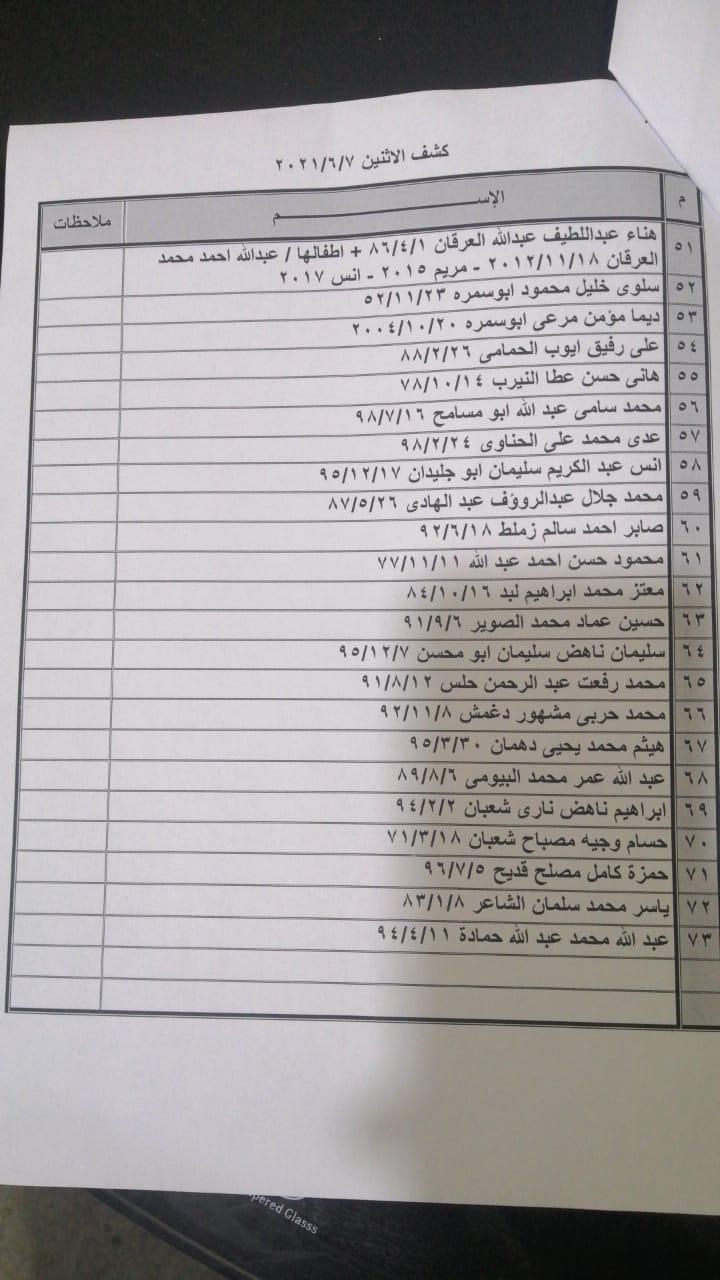 كشف الاثنين ٢٠٢١/٦/٧
م الإســـــــــم ملاحظات
٥١ هناء عبداللطيف عبدالله العرقان ٨٦/٤/١ + اطفالها / عبدالله احمد محمد
العرقان ٢٠١٢/١١/١٨ - مريم ٢٠١٥ - انس ٢٠١٧
٥٢ سلوى خليل محمود ابوسمره ٥٢/١١/٢٣
٥٣ ديما مؤمن مرعى ابوسمره ٢٠٠٤/١٠/٢٠
٥٤ على رفيق ايوب الحمامى ٨٨/٢/٢٦
٥٥ هانى حسن عطا النيرب ٧٨/١٠/١٤
٥٦ محمد سامى عبد الله ابو مسامح ٩٨/٧/١٦
٥٧ عدى محمد على الحناوى ٩٨/٢/٢٤
٥٨ انس عبد الكريم سليمان ابو جليدان ٩٥/١٢/١٧
٥٩ محمد جلال عبدالرووف عبد الهادى ٨٧/٥/٢٦
٦٠ صابر احمد سالم زملط ٩٢/٦/١٨
٦١ محمود حسن احمد عبد الله ٧٧/١١/١١
٦٢ معتز محمد ابراهيم لبد ٨٤/١٠/١٦
٦٣ حسين عماد محمد الصوير ٩١/٩/٦
٦٤ سليمان ناهض سليمان ابو محسن ٩٥/١٢/٧
٦٥ محمد رفعت عبد الرحمن حلس ٩١/٨/١٢
٦٦ محمد حربى مشهور دغمش ٩٢/١١/٨
٦٧ هيثم محمد يحيى دهمان ٩٥/٣/٣٠
٦٨ عبد الله عمر محمد البيومى ٨٩/٨/٦
٦٩ ابراهيم ناهض نارى شعبان ٩٤/٢/٢
٧٠ حسام وجيه مصباح شعبان ٧١/٣/١٨
٧١ حمزة كامل مصلح قديح ٩٦/٧/٥
٧٢ ياسر محمد سلمان الشاعر ٨٣/١/٨
٧٣ عبد الله محمد عبد الله حمادة ٩٤/٤/١١
pered Glasss